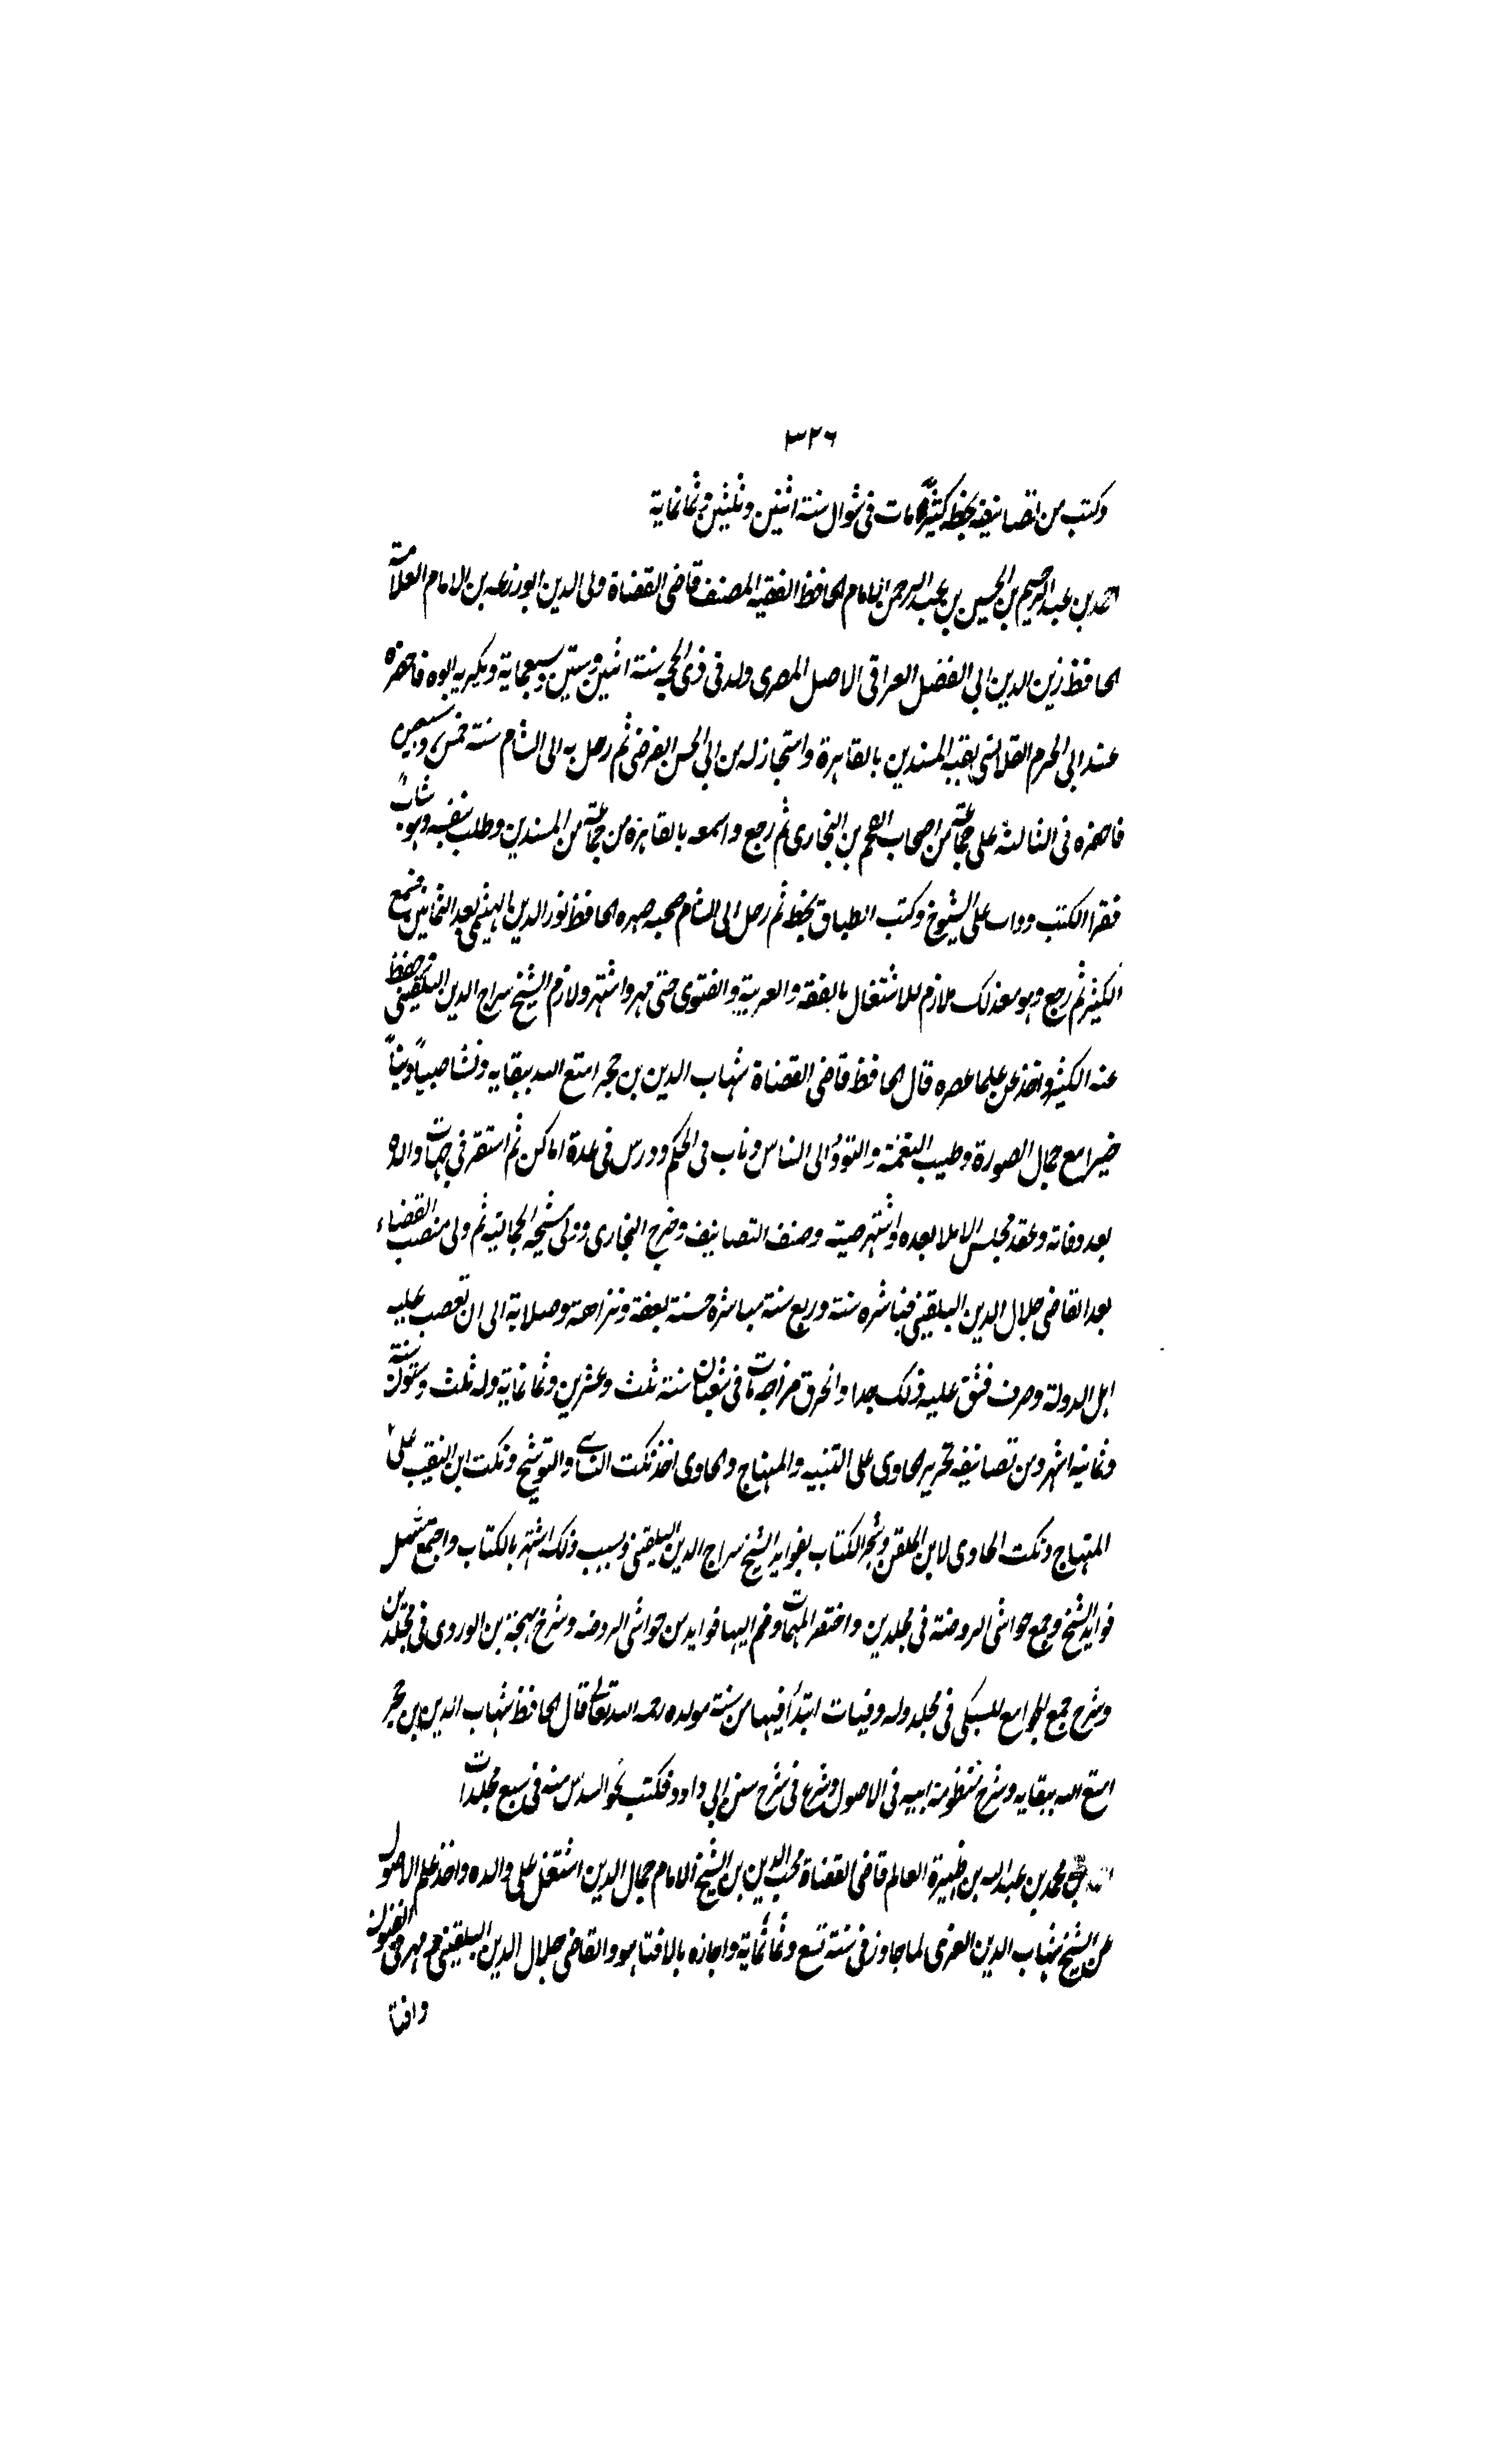 ٣٢٦
وكتب من تصانيفه بخطه كثيرا مات في شوال سنة اثنين وثلثين وثمانماية
احمد بن عبد الرحيم بن الحسين بن عبد الرحمن الامام الحافظ الفقيه المصنف قاضى القضاة ولى الدين ابو زرعه بن الامام العلامة
الحافظ زين الدين ابي الفضل العراقى الاصل المصرى ولد فى ذى الحجه سنة اثنين وستين وسبعماية وبكر به ابوه فاحضره
عند ابى الحرم القلانسى بقية المسندين بالقاهرة واستجاز له من ابي الحسن العرضى ثم رحل به الى الشام سنة خمس وستين
فاحضره فى الثالثة على جماعة من اصحاب الفخر بن البخارى ثم رجع واسمعه بالقاهره من جماعة من المسندين وطلب بنفسه وهو شاب
فقرا الكتب ودار على الشيوخ وكتب الطباق بخطه ثم رحل الى الشام صحبه صهره الحافظ نور الدين الهيثمى بعد الثمانين فسمع
الكثير ثم رجع وهو مع ذلك ملازم للاشتغال بالفقه والعربية والفتوى حتى مهر واشتهر ولازم الشيخ سراج الدين البلقينى وحفظ
عنه الكثير واخذ عن علما عصره قال الحافظ قاضى القضاة شهاب الدين بن حجر امتع الله ببقايه ونشا صينا دينا
خيرا مع جمال الصورة وطيب النغمة والتودد الى الناس وناب فى الحكم ودرس فى عدة اماكن ثم استقر فى جهات والده
بعد وفاته وعقد مجلس الاملا بعده واشتهر صيته وصنف التصانيف وخرج التخارى وولى مشيخة الجمالية ثم ولى منصب القضاء
بعد القاضى جلال الدين البلقينى فباشره سنة وربع سنة مباشرة حسنة بعفة ونزاهة وصلابة الى ان تعصب عليه
اهل الدولة وصرف فشق عليه ذلك جدا وانحرق مزاجه مات فى شعبان سنة ثلث وعشرين وثمانماية وله ثلث وستون سنة
وثمانية اشهر ومن تصانيفه تحرير الحاوى على التنبيه والمنهاج والحاوى اخذ نكت النسائى والتوشيح ونكت ابن النقيب على
المنهاج ونكت الحاوى لابن الملقن وشحن الكتاب بفوايد الشيخ سراج الدين البلقينى وبسبب ذلك اشتهر بالكتاب واجتمع شمل
فوايد الشيخ وجمع حواشى الروضة فى مجلدين واختصر المهمات وضم اليها فوايد من حواشى الروضه وشرح بهجة بن الوردى فى مجلدين
وشرح جمع الجوامع للسبكى فى مجلد وله وفيات ابتدأ فيها من سنة مولده رحمه الله تعالى قال الحافظ شهاب الدين بن حجر
امتع الله ببقايه وشرح منظومة ابيه فى الاصول وشرع فى شرح سنن ابي داود فكتب نحو السدس منه فى سبع مجلدات
بن محمد بن عبد الله بن ظهيرة العالم قاضى القضاة محب الدين بن الشيخ الامام جمال الدين اشتغل على والده واخذ علم الاصول
عن الشيخ شهاب الدين الغزى لما جاور فى سنة تسع وثمانماية واجازه بالافتا هو والقاضى جلال الدين البلقينى ومهر فى الفنون
وافتا